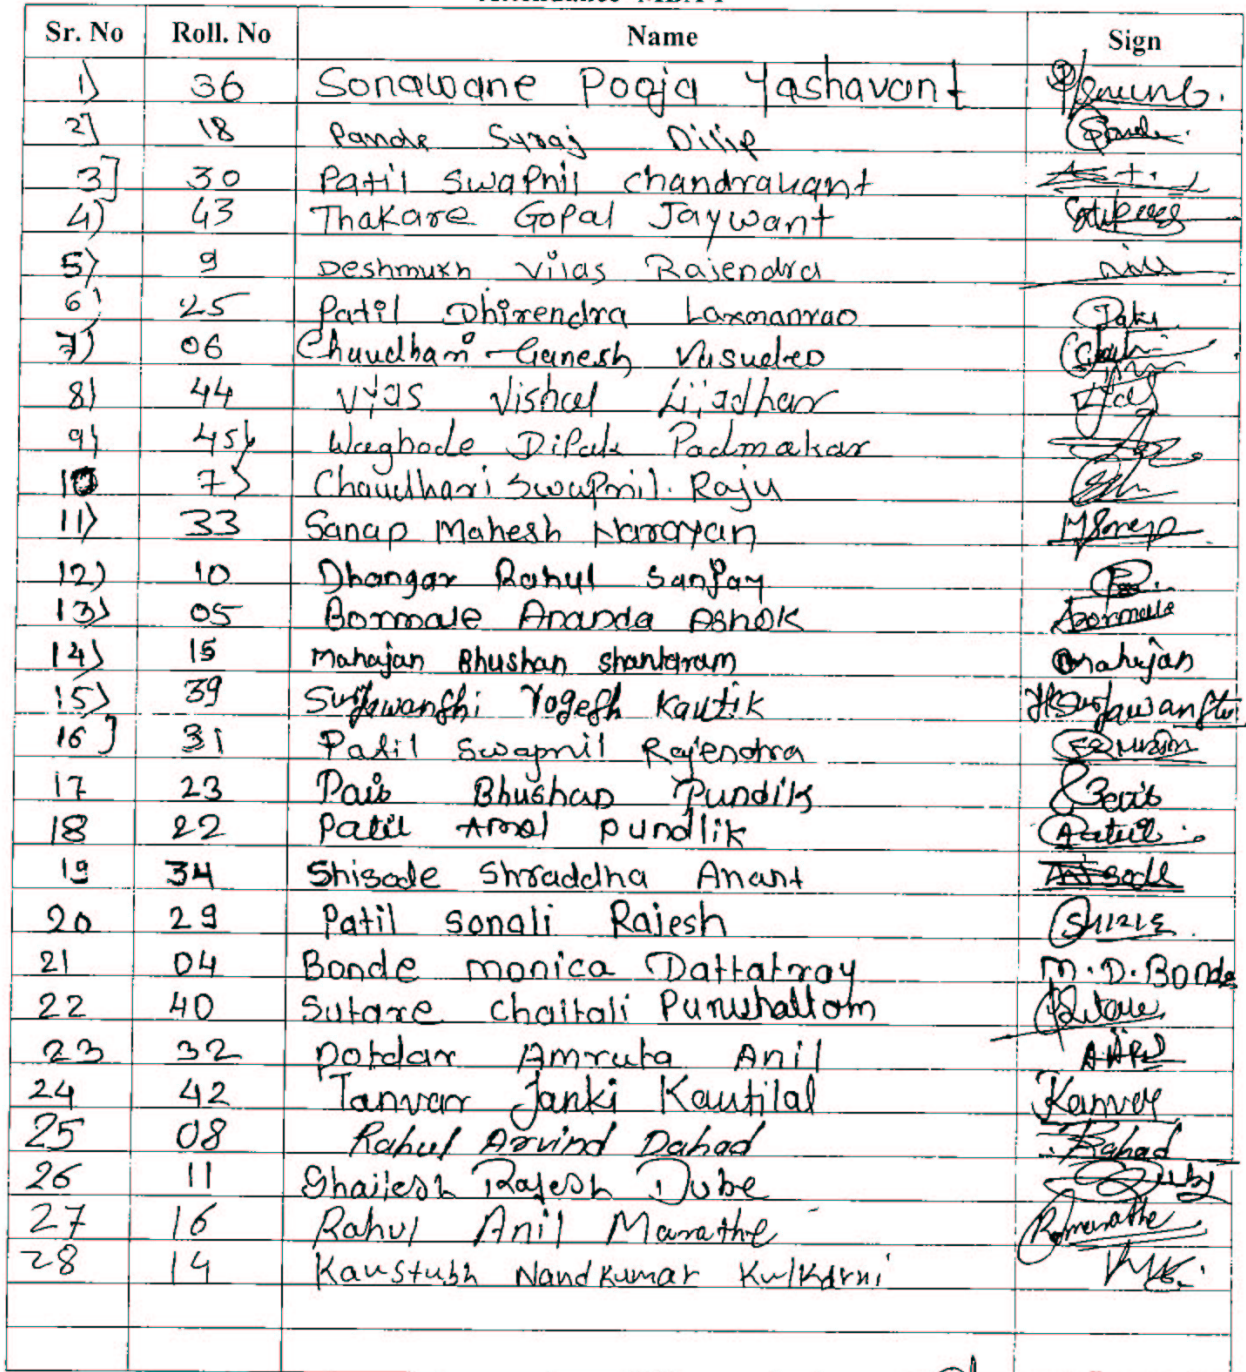 Attendance MBA I
Sr. No Roll. No Name Sign
1) 36 Sonawane Pooja Yashavant
2] 18 Pande Suraj Dilip
3] 30 Patil Swapnil Chandrakant
4) 43 Thakare Gopal Jaywant
5) 9 Deshmukh Vilas Rajendra
6) 25 Patil Dhirendra Laxmanrao
7) 06 Chaudhari Ganesh Vasudeo
8) 44 Vyas Vishal Liladhar
9) 45) Waghode Dipak Padmakar
10 7) Chaudhari Swapnil. Raju
11) 33 Sanap Mahesh Narayan
12) 10 Dhangar Rahul Sanjay
13) 05 Bormale Ananda Ashok Bormale
14) 15 Mahajan Bhushan Shantaram Mahajan
15) 39 Suryawanshi Yogesh Kautik YKSuryawanshi
16] 31 Patil Swapnil Rajendra
17 23 Patil Bhushan Pundlik
18 22 Patil Amol Pundlik
19 34 Shisode Shraddha Anant
20 29 Patil Sonali Rajesh
21 04 Bonde monica Dattatray M.D.Bonde
22 40 Sutare Chaitali Purushottam
23 32 Potdar Amruta Anil
24 42 Tanvar Janki Kautilal
25 08 Rahul Arvind Dahad
26 11 Shailesh Rajesh Dube
27 16 Rahul Anil Marathe Rmarathe
28 14 Kaustubh Nandkumar Kulkarni